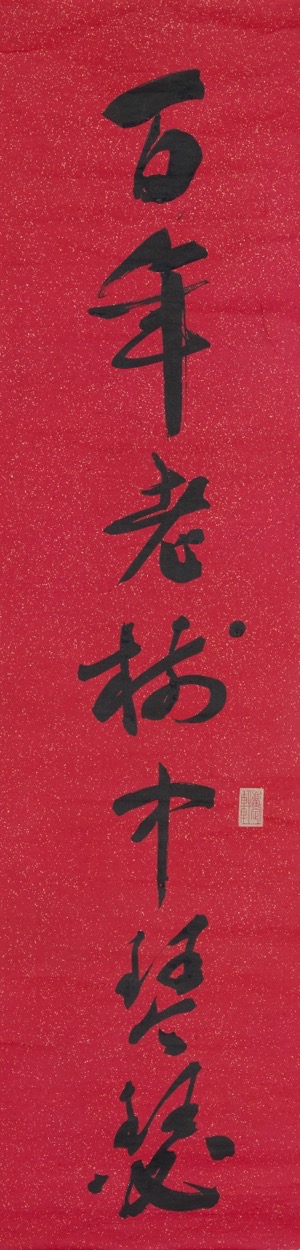 百年老樹中琴瑟